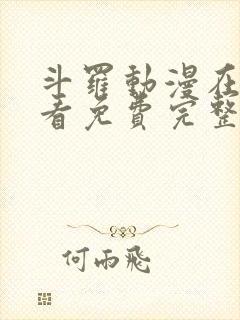 斗羅動漫在
看免費完整
何雨飛